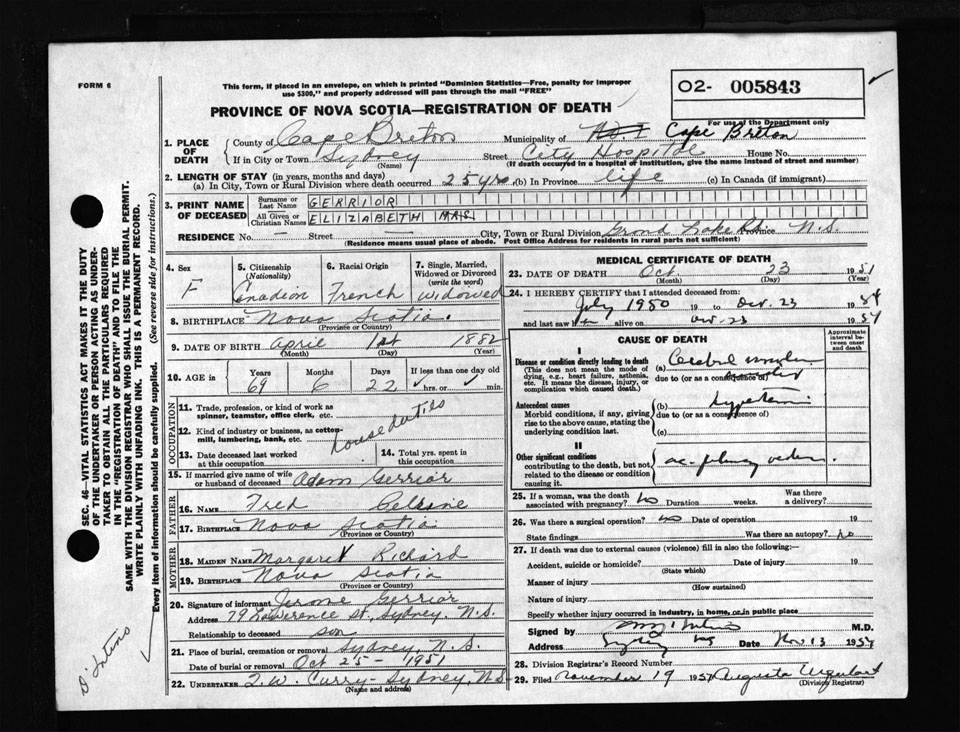 FORM 6
This form, if placed in an envelope, on which is printed "Dominion Statistics—Free, penalty for improper
use $300," and properly addressed will pass through the mail "FREE"
PROVINCE OF NOVA SCOTIA—REGISTRATION OF DEATH
O2- 005843
For use of the Department only
1. PLACE OF DEATH
County of Cape Breton Municipality of Cape Breton
If in City or Town Sydney Street City Hospital House No.
(Name) (If death occurred in a hospital of institution, give the name instead of street and number)
2. LENGTH OF STAY (in years, months and days)
(a) In City, Town or Rural Division where death occurred 25 yrs. (b) In Province life (c) In Canada (if immigrant)
3. PRINT NAME OF DECEASED
Surname or Last Name GERRIOR
All Given or Christian Names ELIZABETH MRS
RESIDENCE No. — Street — City, Town or Rural Division Grand Lake Rd. Province N.S.
(Residence means usual place of abode. Post Office Address for residents in rural parts not sufficient)
4. Sex F
5. Citizenship (Nationality) Canadian
6. Racial Origin French
7. Single, Married, Widowed or Divorced (write the word) Widowed
8. BIRTHPLACE Nova Scotia.
(Province or Country)
9. DATE OF BIRTH April 1st 1882
(Month) (Day) (Year)
10. AGE in Years Months Days If less than one day old
69 6 22 hrs. or min.
OCCUPATION
11. Trade, profession, or kind of work as spinner, teamster, office clerk, etc.
12. Kind of industry or business, as cotton-mill, lumbering, bank, etc.
House duties
13. Date deceased last worked at this occupation
14. Total yrs. spent in this occupation
15. If married give name of wife or husband of deceased Adam Gerrior
FATHER
16. NAME Fred
17. BIRTHPLACE Nova Scotia
(Province or Country)
MOTHER
18. MAIDEN NAME Margaret Richard
19. BIRTHPLACE Nova Scotia
(Province or Country)
20. Signature of informant Jerome Gerrior
Address 79 Lawerence St., Sydney, N.S.
Relationship to deceased son
21. Place of burial, cremation or removal Sydney, N.S.
Date of burial or removal Oct 25 - 1951
22. UNDERTAKER T.W. Curry - Sydney, N.S.
(Name and address)
MEDICAL CERTIFICATE OF DEATH
23. DATE OF DEATH Oct. 23 1951
(Month) (Day) (Year)
24. I HEREBY CERTIFY that I attended deceased from:
July 1950 19 to Oct. 23 19
and last saw alive on Oct. 23 19
CAUSE OF DEATH
Approximate interval between onset and death
I
Disease or condition directly leading to death
(This does not mean the mode of dying, e.g., heart failure, asthenia, etc. It means the disease, injury, or complication which caused death.)
(a) Cerebral
due to (or as a consequence of)
Antecedent causes
Morbid conditions, if any, giving rise to the above cause, stating the underlying condition last.
(b)
due to (or as a consequence of)
(c)
II
Other significant conditions
contributing to the death, but not related to the disease or condition causing it.
25. If a woman, was the death associated with pregnancy? no Duration weeks. Was there a delivery?
26. Was there a surgical operation? no Date of operation 19
State findings Was there an autopsy? no
27. If death was due to external causes (violence) fill in also the following:—
Accident, suicide or homicide? Date of injury 19
(State which)
Manner of injury
(How sustained)
Nature of injury
Specify whether injury occurred in industry, in home, or in public place
Signed by M.D.
Address Sydney Date Nov 13 195
28. Division Registrar's Record Number
29. Filed November 19 195 Augusta Urquhart
(Division Registrar)
SEC. 46—VITAL STATISTICS ACT MAKES IT THE DUTY
OF THE UNDERTAKER OR PERSON ACTING AS UNDER-
TAKER TO OBTAIN ALL THE PARTICULARS REQUIRED
IN THE "REGISTRATION OF DEATH" AND TO FILE THE
SAME WITH THE DIVISION REGISTRAR WHO SHALL ISSUE THE BURIAL PERMIT.
WRITE PLAINLY WITH UNFADING INK. THIS IS A PERMANENT RECORD.
Every item of information should be carefully supplied. (See reverse side for instructions.)